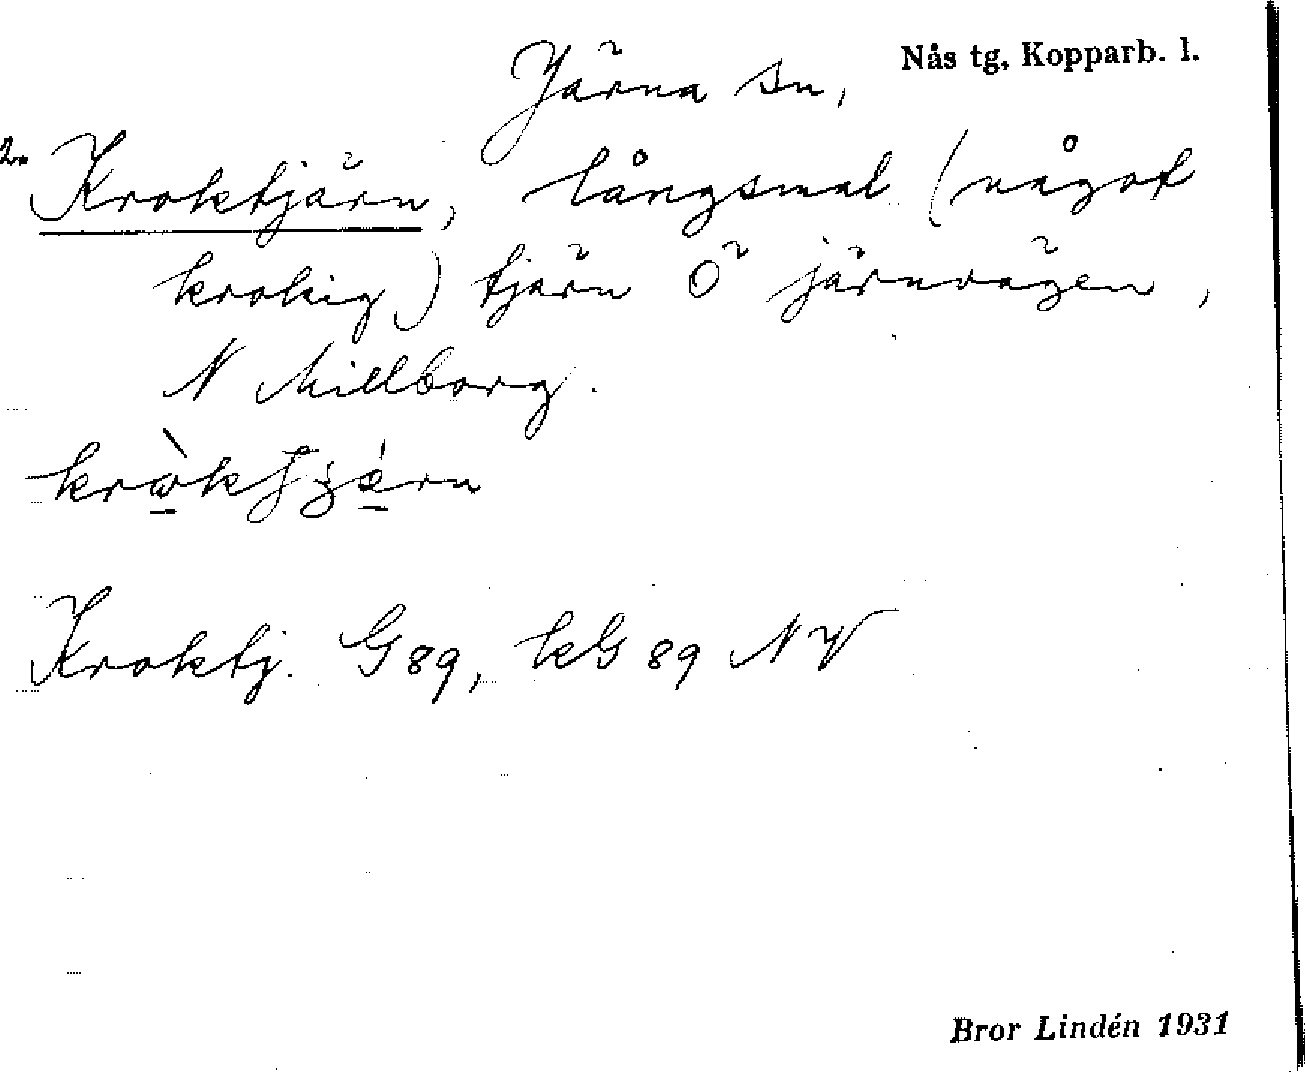 Nås tg, Kopparb. l.
Järna sn,
2. Kroktjärn, långsmal (något
krokig) tjärn Ö järnvägen,
N Millborg.
Kroktj. G 89, kG 89 NV
Bror Lindén 1931